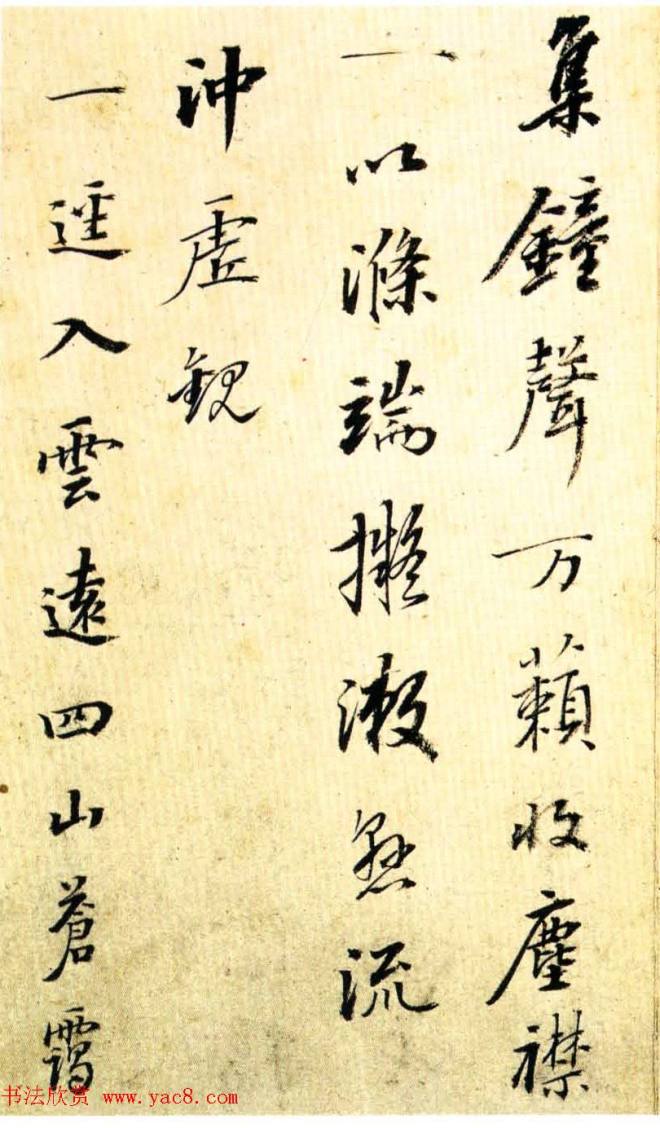 集鐘聲万藾收塵襟
一以滌端擬漱懸流
沖虛觀
一逕入雲遠四山蒼靄
书法欣赏 www.yac8.com